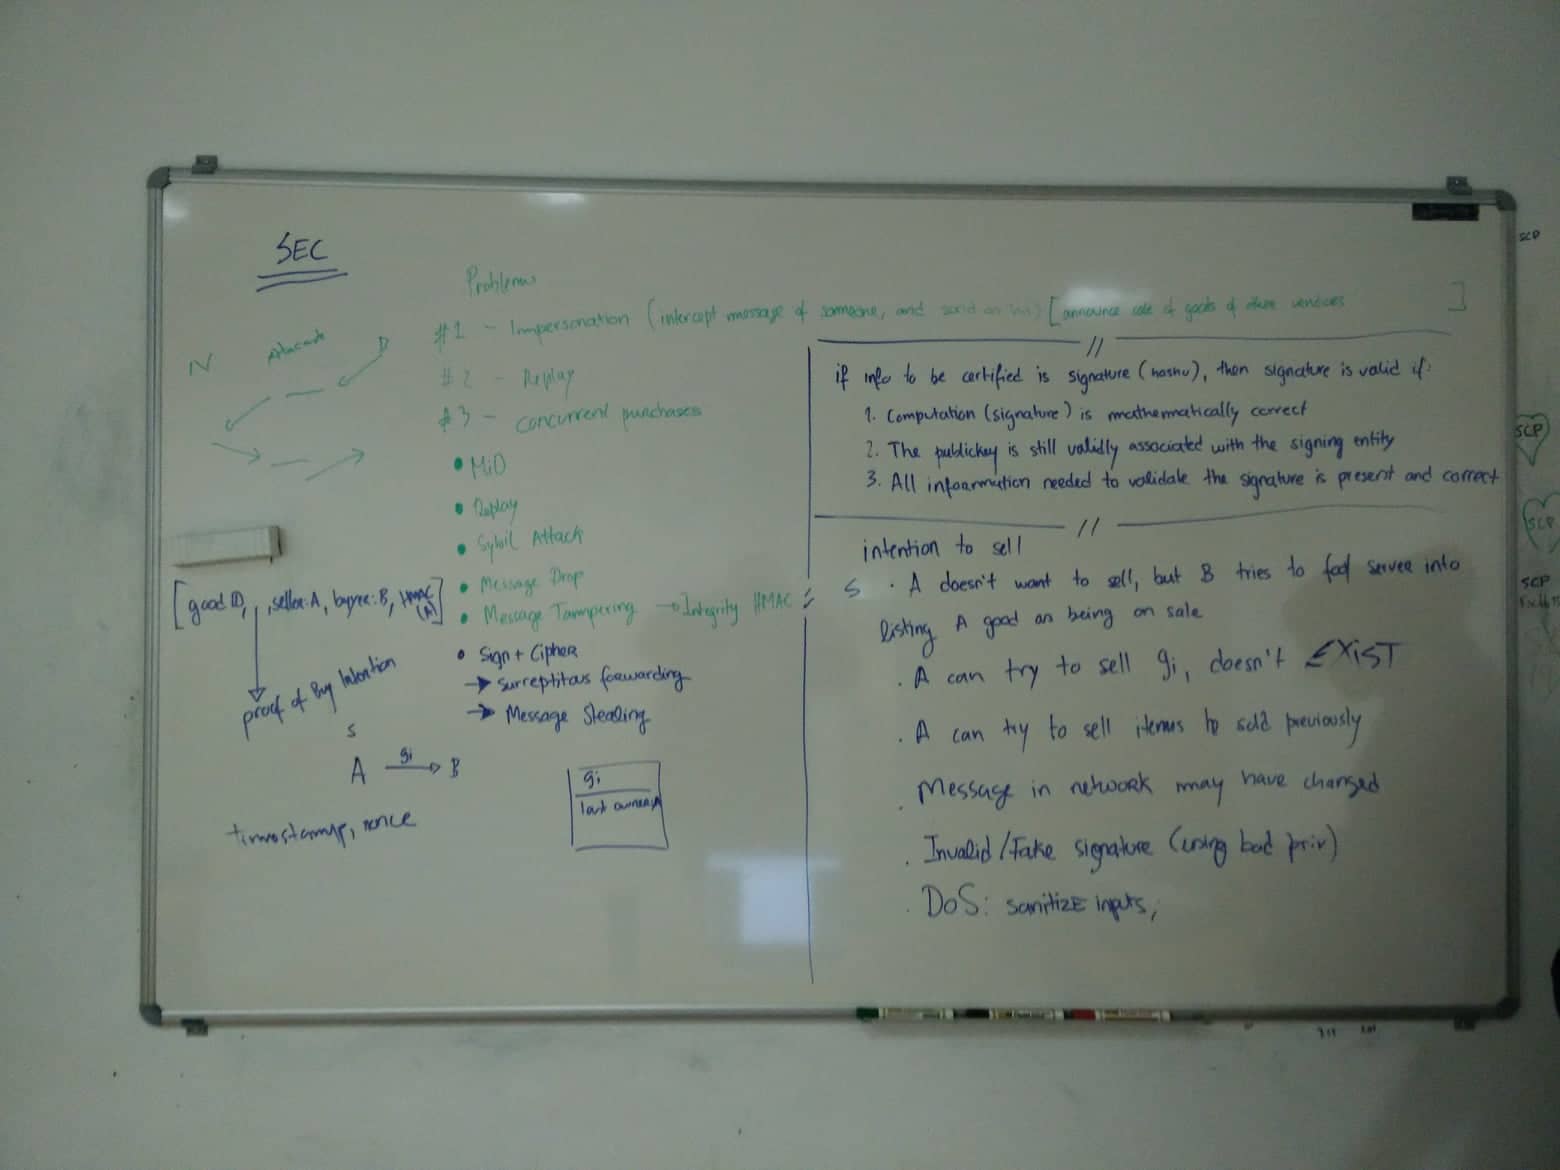 SEC
Problems
#1 - Impersonation (intercept message of someone, and send on his) [announce sale of goods of other vendors ]
N
#2 - Replay
#3 - concurrent purchases
• MiD
• Replay
• Sybil Attack
• Message Drop
• Message Tampering → Integrity HMAC
• Sign + Cipher
→ surreptitous forwarding
→ Message Stealing
[good ID, , seller: A, buyer: B, HMAC (A)]
proof of Buy Intention
S
A gi → B
timestamp, nonce
gi
last owner: A
//
if info to be certified is signature (hashu), then signature is valid if:
1. Computation (signature) is mathematically correct
2. The publickey is still validly associated with the signing entity
3. All information needed to validate the signature is present and correct
//
intention to sell
S • A doesn't want to sell, but B tries to fool server into
listing A good as being on sale
. A can try to sell gi, doesn't EXIST
. A can try to sell items he sold previously
. Message in network may have changed
. Invalid/Fake signature (using bad priv)
. DoS: sanitize inputs,
SCP
SCP
SCP
SCP